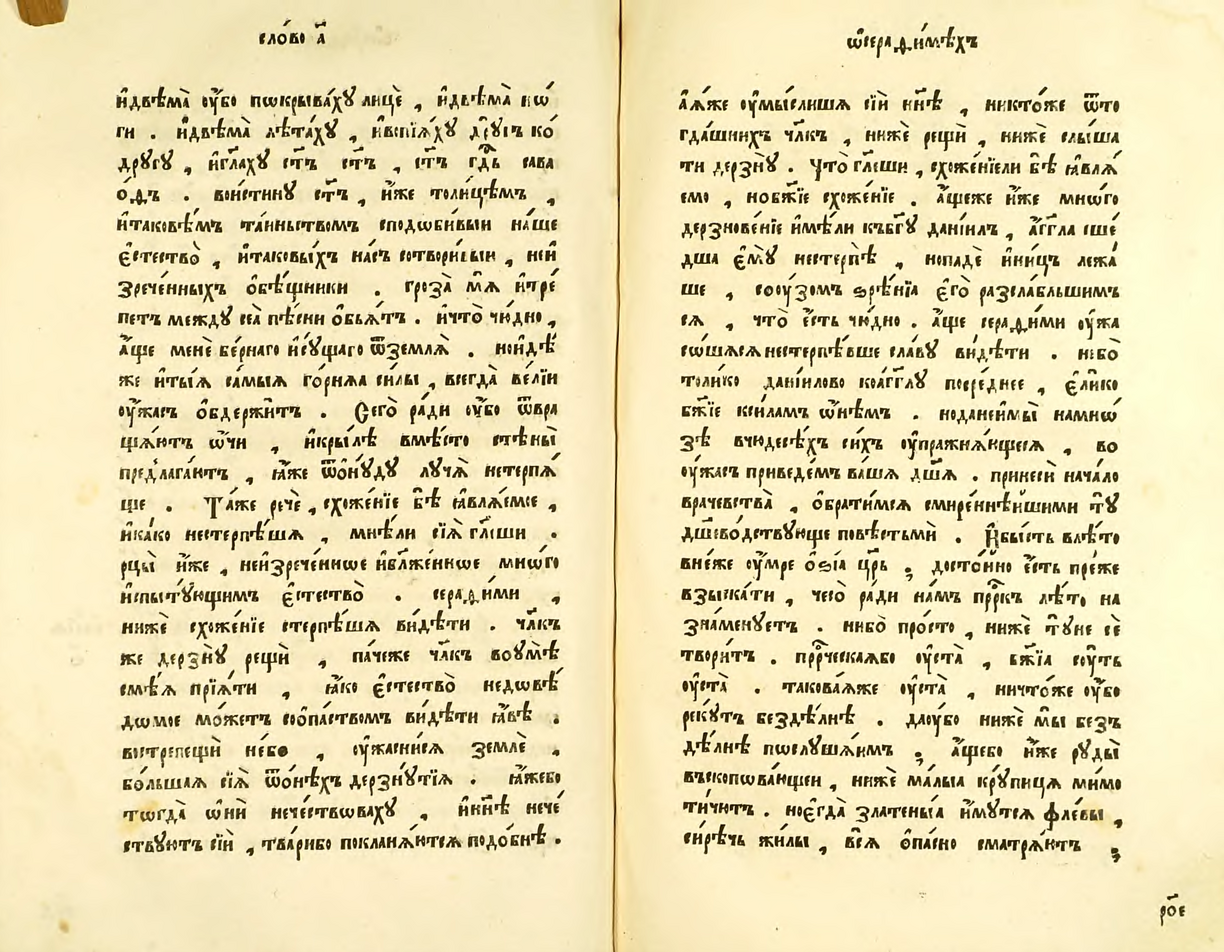 сло́во а҃
и҆двѣма̀ оу҆́бо пѡкрыва́хꙋ лицѐ , и҆двѣ́ма нѡ́
ги . и҆двѣма̀ лѣта́хꙋ , и҆вопїѧ́хꙋ дрꙋ́гъ ко
дрꙋ́гꙋ , и҆гл҃ахꙋ ст҃ъ ст҃ъ , ст҃ъ гд҇ь сава
ѻ҆́ѳъ . вои́стинꙋ ст҃ъ , и҆́же толи́цѣмъ ,
и҆таковѣ́мъ та́иньствомъ сподѡби́выи на́ше
є҆стество̀ , и҆таковы́хъ на́съ сотвори́выи , неи
зрече́нныхъ о҆бѣ́щники . гроза́ мѧ и҆тре́
петъ междꙋ̀ сеѧ̀ пѣ́сни о҆бьѧ́тъ . и҆что̀ чю́дно ,
а҆́ще менѐ бе́рнаго и҆сꙋ́щаго ѿземлѧ̀ . поидѣ́
же и҆ты́ѧ самы́ѧ го́рнѧѧ си́лы , всегда̀ ве́лїи
оу҆́жасъ о҆бдержи́тъ . Сего̀ ра́ди оу҆́бо ѿвра
ща́ютъ ѡ҆́чи , и҆кры́лѣ вмѣ́сто стѣны̀
предлага́ютъ , ꙗ҆́же ѿѻ҆нꙋ́дꙋ лꙋчѧ̀ нетерпѧ́
ще . Та́же речѐ , схоже́нїе бѣ̀ ꙗ҆влѧ́емое ,
и҆ка́ко нестерпѣ́шѧ , мнѣ́ли сїѧ̀ гл҃еши .
рцы̀ и҆́же , неи҆зрече́нное и҆бл҃же́нное мно́гѡ
и҆спытꙋ́ющимъ є҆стество̀ . серафи́ми ,
нижѐ схоже́нїе стерпѣ́шѧ ви́дѣти . чл҃къ
же дерзнꙋ̀ рещѝ , па́чеже чл҃къ воꙋ҆мѣ̀
смѣ́ѧ прїѧ́ти , ꙗ҆́ко є҆стество̀ недовѣ́
домое мо́жетъ соо҆па́ствомъ ви́дѣти ꙗ҆́вѣ .
вострепещѝ не́бо , оу҆жасни́сѧ землѐ .
бо́льшаѧ сїѧ̀ ѿѻ҆нѣ́хъ дерзнꙋ́тїѧ . ꙗ҆́жебо
тогда̀ ѻ҆нѝ нече́ствовахꙋ , и҆нн҃ѣ нече́
ствꙋютъ сїѝ , тва́рибо покланѧ́ютсѧ подо́бнѣ .
ѡ҆серафи́мѣхъ
а҆ѧ҆́же оу҆мы́слишѧ сїѝ нн҃ѣ , никто́же ѿто
гда́шнихъ чл҃къ , нижѐ рещѝ , нижѐ слы́ша
ти дерзнꙋ̀ . Что̀ гл҃еши , схоже́нїели бѣ̀ ꙗ҆влѧ́
емо , нобж҃їе схоже́нїе . а҆́щеже и҆́же мно́го
дерзнове́нїе и҆мѣ́ли къбг҃ꙋ данїи́лъ , а҆́гг҃ла сше́
дша є҆мꙋ̀ нестерпѣ̀ , нопадѐ и҆ни́цъ лежа́
ше , соо҆у҆́зомъ зрѣ́нїѧ є҆гѡ̀ разсла́бльшимъ
сѧ , что̀ є҆́сть чю́дно . а҆́ще серафи́ми оу҆жа
со́шѧсѧ нестерпѣ́вше сла́вꙋ ви́дѣти . нибо̀
толи́ко данїи́лово коа҆́гг҃лꙋ посре́днее , є҆ли́ко
бж҃їе ксила́мъ ѡ҆́нѣмъ . ноданеи҆мы̀ намно́
зѣ вчюдесѣ́хъ си́хъ оу҆пражнѧ́ющесѧ , во
оу҆́жасъ приведе́мъ ва́шѧ дш҃ѧ . принесѝ нача́ло
врачевства̀ , о҆брати́мсѧ смире́ннѣйшими тꙋ̀
дш҃ево́дствꙋюще по́вѣстьми . И҆бы́сть влѣ́то
вне́же оу҆́мре о҆зі́ѧ цр҃ь ; досто́йно є҆́сть пре́же
взыска́ти , чего̀ ра́ди на́мъ прⷪ҇ркъ лѣ́то на
зна́менꙋетъ . нибо̀ про́сто , нижѐ тꙋ́не сѐ
твори́тъ . прⷪ҇рческаѧбо оу҆ста̀ , бж҃їѧ сꙋ́ть
оу҆ста̀ . такова́ѧже оу҆ста̀ , ничто́же оу҆́бо
рекꙋ́тъ бездѣ́лнѣ . даоу҆́бо нижѐ мы̀ безъ
дѣ́лнѣ послꙋ́шаимъ ; а҆́щебо и҆́же рꙋ́ды
въскопова́ющеи , нижѐ ма́лыѧ крꙋпи́цѧ мимо
тичю́тъ . ноє҆гда̀ злате́ныѧ и҆́мꙋтсѧ фле́вы ,
си́рѣчь жи́лы , всѧ̀ о҆па́сно сматрѧ́ютъ ;
ро́е